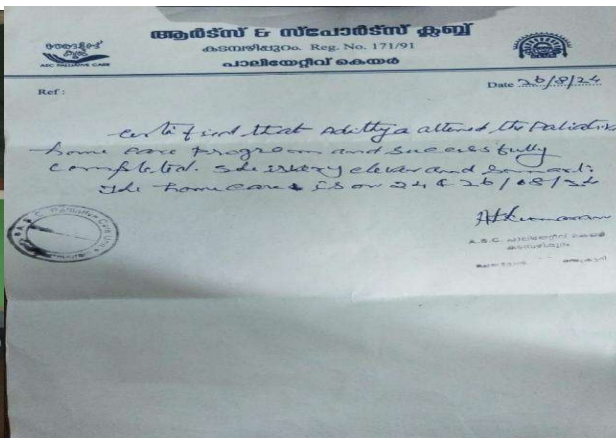 ആർട്സ് & സ്പോർട്സ് ക്ലബ്ബ്
കടമ്പഴിപ്പുറം. Reg. No. 171/91
പാലിയേറ്റീവ് കെയർ
ASC PALLIATIVE CARE
Ref :
Date 26/8/24
certified that Adithya attened the Paliative
home care program and successfully
completed. She is very clever and smart.
The home care is on 24 & 26/08/24
A.S.C. പാലിയേറ്റീവ് കെയർ
കടമ്പഴിപ്പുറം